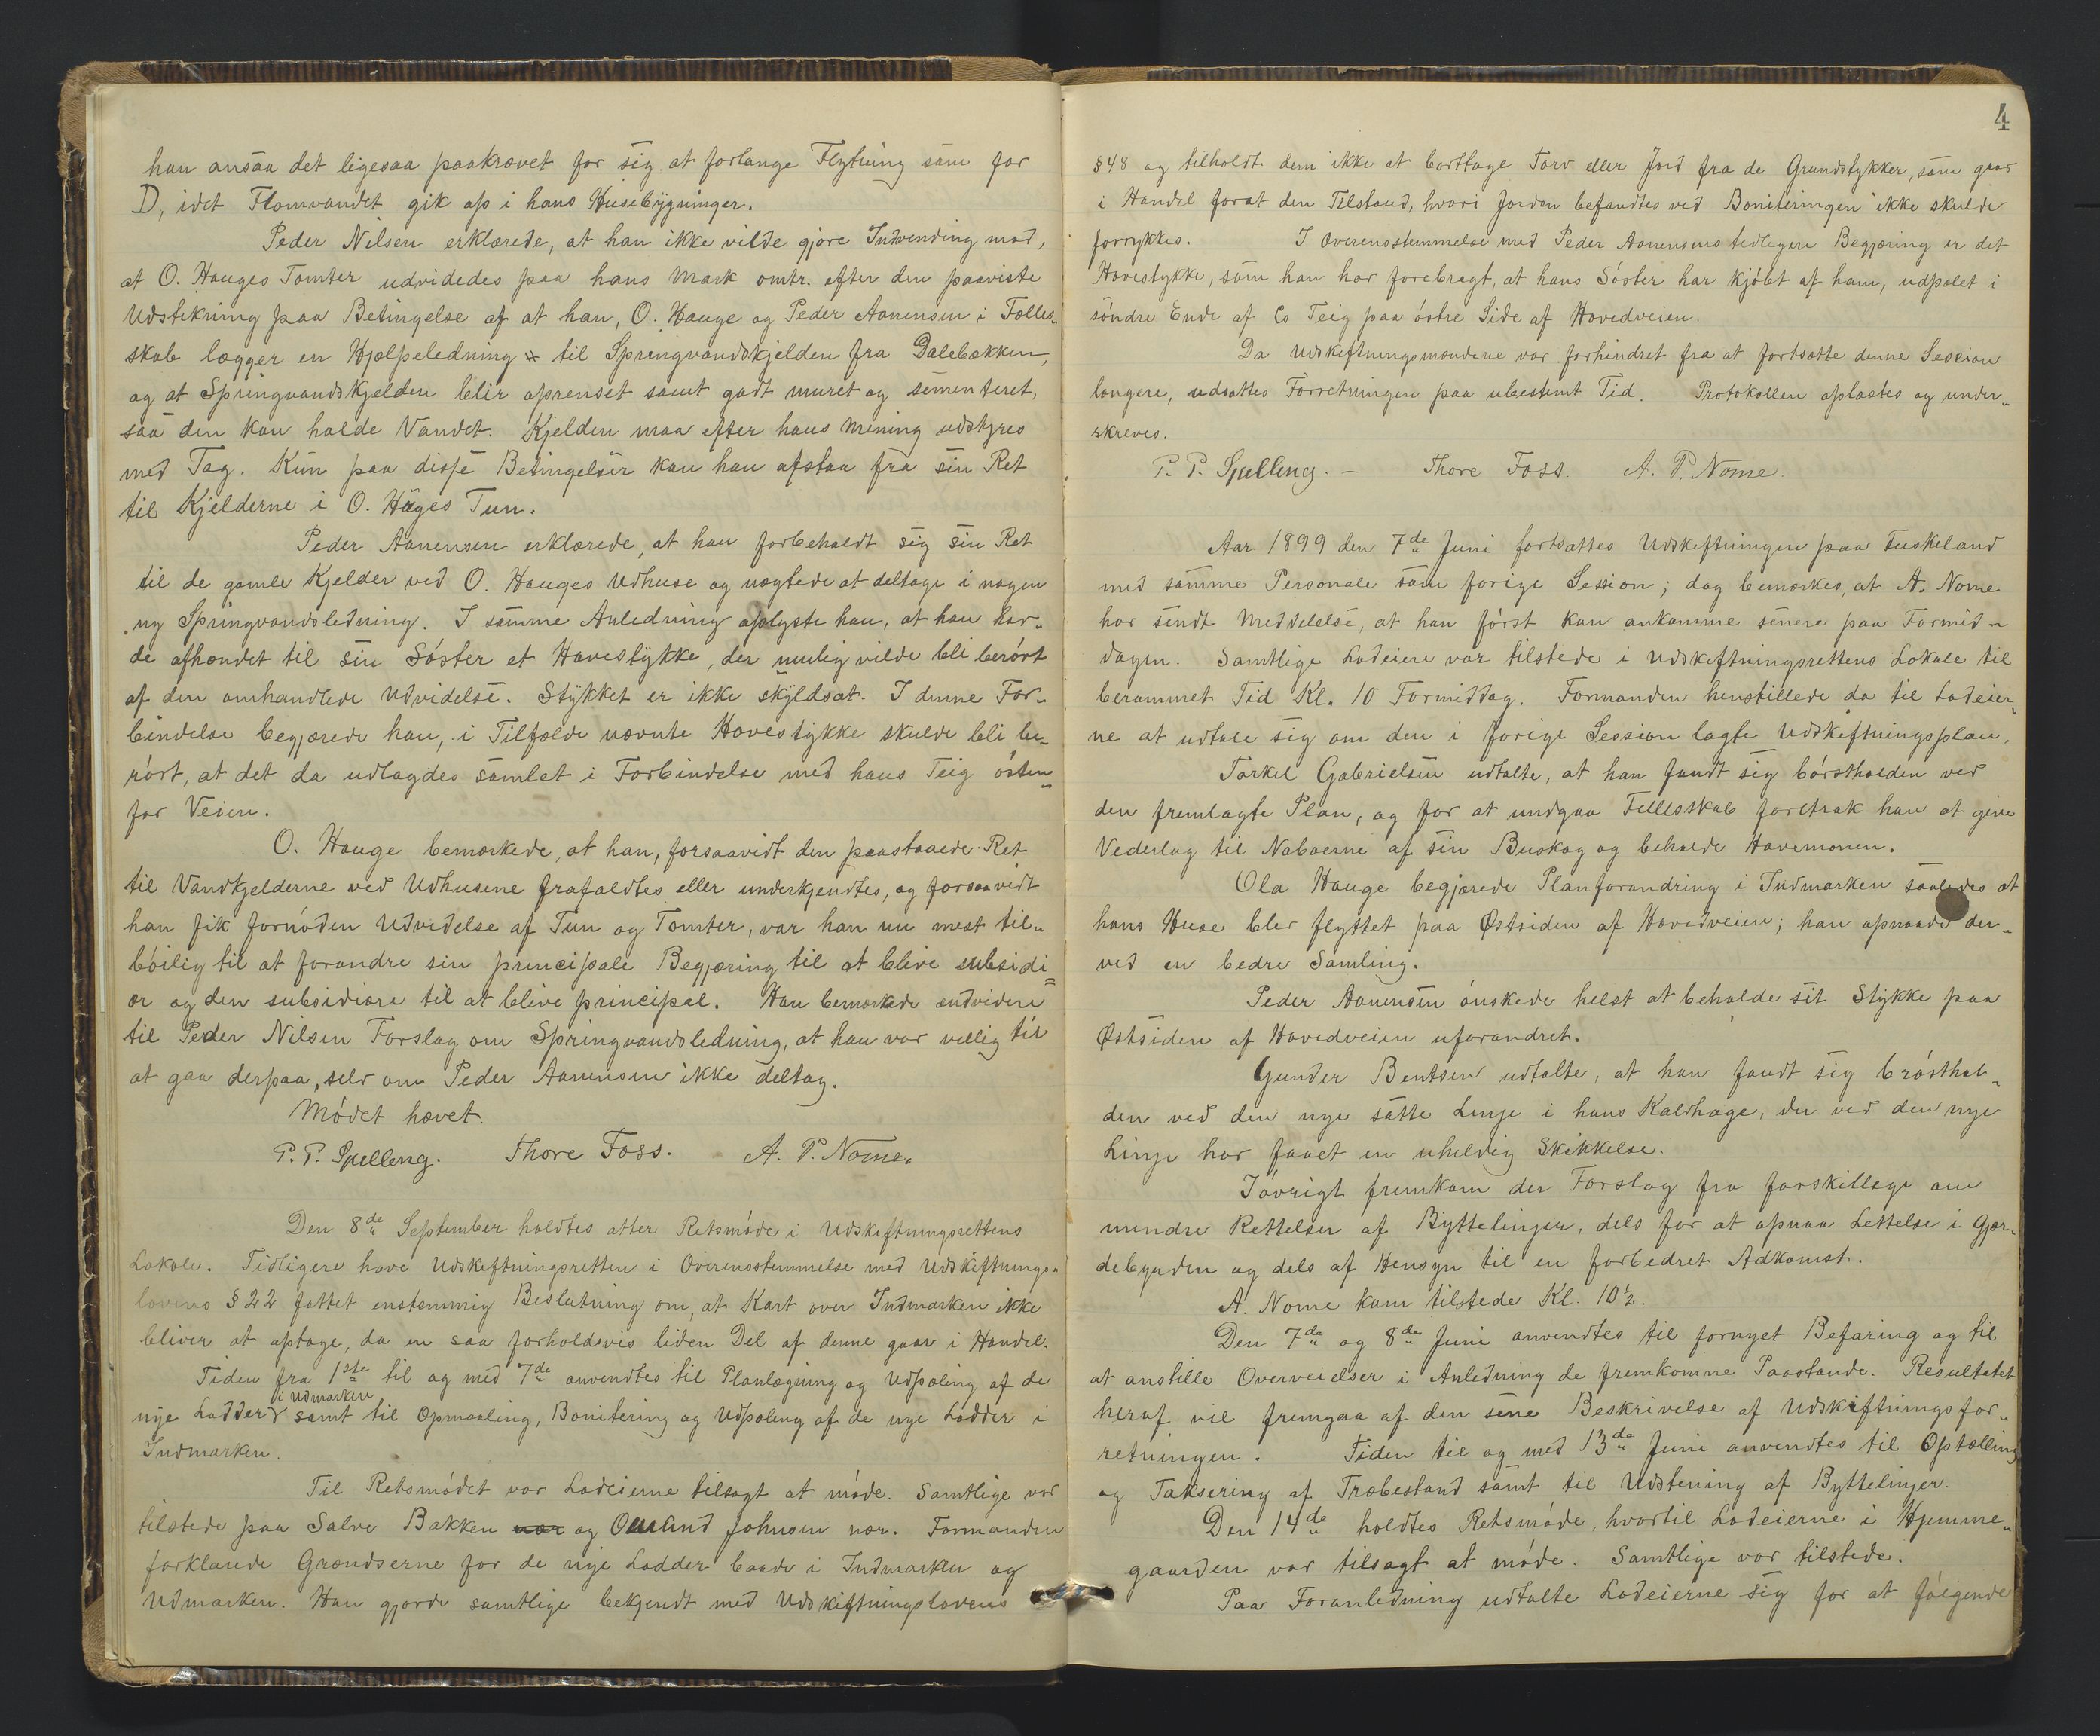 han ansaa det ligesaa paakrævet for sig at forlange Flytning som for
D, idet Flomvandet gik op i hans Husebygninger.
Peder Nilsen erklærede, at han ikke vilde gjøre Indvending mod,
at O. Hauges Tomter udvidedes paa hans Mark omtr. efter den paaviste
Udstikning paa Betingelse af at han, O. Hauge og Peder Aanensen i Fælles-
skab lægger en Hjælpeledning til Springvandskjelden fra Dalebækken,
og at Springvandskjelden blir oprenset samt godt muret og sementeret,
saa den kan holde Vandet. Kjelden maa efter hans Mening udstyres
med Tag. Kun paa disse Betingelser kan han afstaa fra sin Ret
til Kjelderne i O. Hauges Tun.
Peder Aanensen erklærede, at han forbeholdt sig sin Ret
til de gamle Kjelder ved O. Hauges Udhuse og nægtede at deltage i nogen
ny Springvandsledning. I samme Anledning oplyste han, at han har-
de afhændet til sin Søster et Havestykke, der mulig vilde bli berørt
af den omhandlede Udvidelse. Stykket er ikke skyldsat. I denne For-
bindelse begjærede han, i Tilfælde nævnte Havestykke skulde bli be-
rørt, at det da udlagdes samlet i Forbindelse med hans Teig østen-
for Veien.
O. Hauge bemærkede, at han, forsaavidt den paastaaede Ret
til Vandkjelderne ved Udhusene frafaldtes eller underkjendtes, og forsaavidt
han fik fornøden Udvidelse af Tun og Tomter, var han nu mest til-
bøilig til at forandre sin principale Begjæring til at blive subsidi-
ær og den subsidiære til at blive principal. Han bemærkede endvidere
til Peder Nilsen Forslag om Springvandsledning, at han var villig til
at gaa derpaa, selv om Peder Aanensen ikke deltog.
Mødet hævet.
P. P. Spelling. Thore Foss. A. P. Nome.
Den 8de September holdtes atter Retsmøde i Udskiftningsrettens
Lokale. Tidligere have Udskiftningsretten i Overensstemmelse med Udskiftnings-
lovens § 22 fattet enstemmig Beslutning om, at Kart over Indmarken ikke
bliver at optage, da en saa forholdsvis liden Del af denne gaar i Handel.
Tiden fra 1ste til og med 7de anvendtes til Planlægning og Udpæling af de
i Udmarken
nye Lodder samt til Opmaaling, Bonitering og Udpæling af de nye Lodder i
Indmarken.
Til Retsmødet var Lodeierne tilsagt at møde. Samtlige var
tilstede paa Salve Bakken nær og Omund Johnsen nær. Formanden
forklarede Grændserne for de nye Lodder baade i Indmarken og
Udmarken. Han gjorde samtlige bekjendt med Udskiftningslovens
4
§48 og tilholdt dem ikke at borttage Torv eller Jord fra de Grundstykker, som gaar
i Handel forat den Tilstand, hvori Jorden befandtes ved Boniteringen ikke skulde
forrykkes. I Overensstemmelse med Peder Aanensens tidligere Begjæring er det
Havestykke, som han har forebragt, at hans Søster har kjøbt af ham, udpælet i
søndre Ende af Cs Teig paa østre Side af Hovedveien.
Da Udskiftningsmændene var forhindret fra at fortsætte denne Session
længere, udsattes Forretningen paa ubestemt Tid. Protokollen oplæstes og under-
skreves.
P. P. Spelling. – Thore Foss. A. P. Nome.
Aar 1899 den 7de Juni fortsattes Udskiftningen paa Tuskeland
med samme Personale som forige Session; dog bemærkes, at A. Nome
har sendt Meddelelse, at han først kan ankomme senere paa Formid-
dagen. Samtlige Lodeiere var tilstede i Udskiftningsrettens Lokale til
berammet Tid Kl. 10 Formiddag. Formanden henstillede da til Lodeier-
ne at udtale sig om den i forige Session lagte Udskiftningsplan.
Torkel Gabrielsen udtalte, at han fandt sig børstholden ved
den fremlagte Plan, og for at undgaa Fellesskab foretrak han at give
Vederlag til Naboerne af sin Buskog og beholde Havemonen.
Ola Hauge begjærede Planforandring i Indmarken saaledes at
hans Huse blev flyttet paa Østsiden af Hovedveien; han opnaade der-
ved en bedre Samling.
Peder Aanensen ønskede helst at beholde sit Stykke paa
Østsiden af Hovedveien uforandret.
Gunder Bentsen udtalte, at han fandt sig brøsthol-
den ved den nye satte Linje i hans Kaldhage, der ved den nye
Linje har faaet en uheldig Skikkelse.
Iøvrigt fremkom der Forslag fra forskillige om
mindre Rettelser af Byttelinjer, dels for at opnaa Lettelse i Gjær-
debyrden og dels af Hensyn til en forbedret Adkomst.
A. Nome kom tilstede Kl. 10½.
Den 7de og 8de Juni anvendtes til fornyet Befaring og til
at anstille Overveielser i Anledning de fremkomne Paastande. Resultatet
heraf vil fremgaa af den sene Beskrivelse af Udskiftningsfor-
retningen. Tiden til og med 13de Juni anvendtes til Optælling
og Taksering af Træbestand samt til Udstening af Byttelinjer.
Den 14de holdtes Retsmøde, hvortil Lodeierne i Hjemme-
gaarden var tilsagt at møde. Samtlige var tilstede.
Paa Foranledning udtalte Lodeierne sig for at følgende